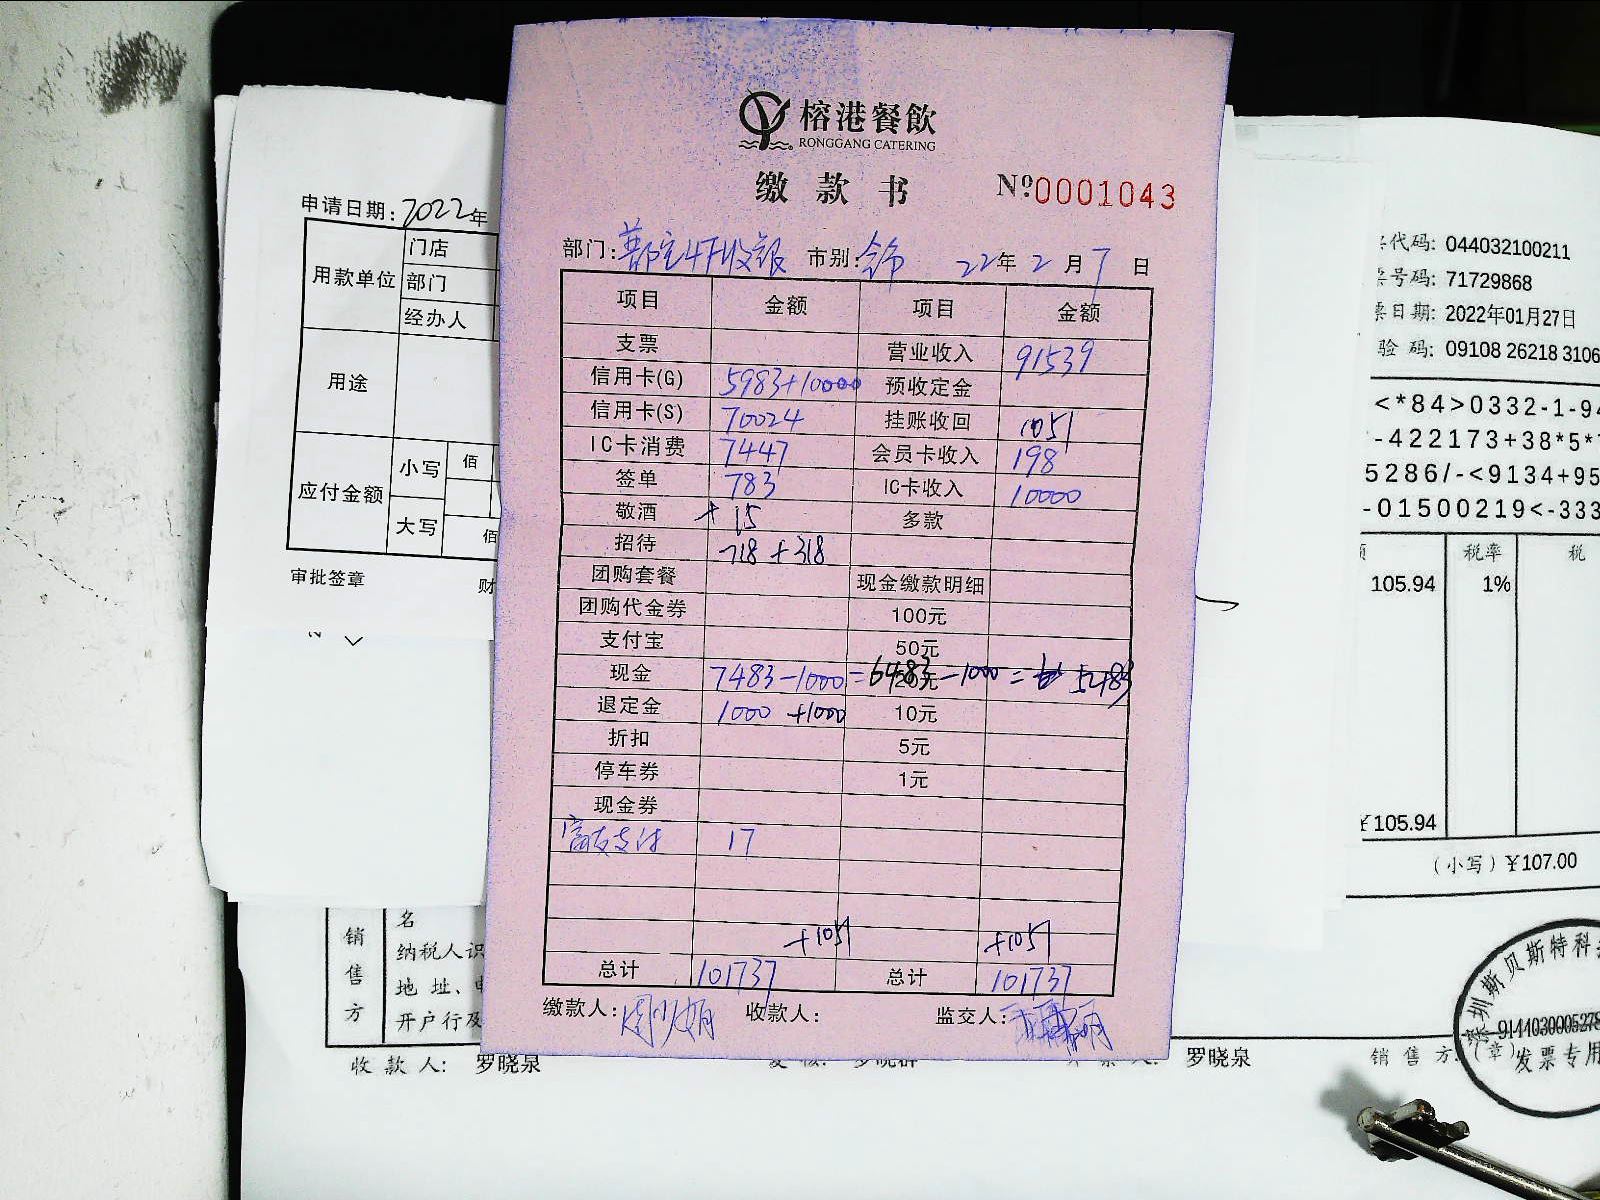 榕港餐飲
RONGGANG CATERING
缴款书
Nº0001043
部门: 4F收银 市别:全部 22年2月7日
项目 金额 项目 金额
支票 营业收入 91539
信用卡(G) 5983+10000 预收定金
信用卡(S) 70024 挂账收回 1051
IC卡消费 7447 会员卡收入 198
签单 783 IC卡收入 10000
敬酒 + 15 多款
招待 718 + 318
团购套餐 现金缴款明细
团购代金券 100元
支付宝 50元
现金 7483-1000=6483-1000= 5483 20元
退定金 1000 +1000 10元
折扣 5元
停车券 1元
现金券
支付 17
+1051 +1051
总计 101737 总计 101737
缴款人: 收款人: 监交人:
申请日期:2022年
用款单位 门店
部门
经办人
用途
应付金额 小写 佰
大写 佰
审批签章 财
代码: 044032100211
票号码: 71729868
票日期: 2022年01月27日
验 码: 09108 26218 3106
<*84>0332-1-94
-422173+38*5*
5286/-<9134+95
-01500219<-333
税率 税
105.94 1%
¥105.94
(小写) ¥107.00
销售方 名
纳税人识
地 址、电
开户行及
收款人: 罗晓泉
罗晓泉
销售方:(章)
深圳斯贝斯特科
9144030005278
发票专用